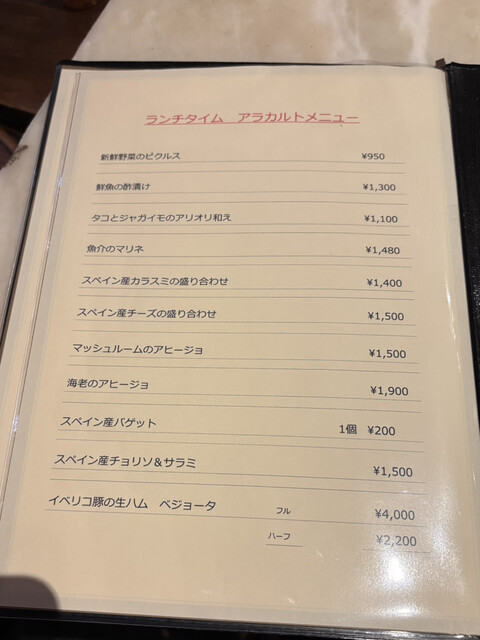 ランチタイム　アラカルトメニュー
新鮮野菜のピクルス ¥950
鮮魚の酢漬け ¥1,300
タコとジャガイモのアリオリ和え ¥1,100
魚介のマリネ ¥1,480
スペイン産カラスミの盛り合わせ ¥1,400
スペイン産チーズの盛り合わせ ¥1,500
マッシュルームのアヒージョ ¥1,500
海老のアヒージョ ¥1,900
スペイン産バゲット 1個 ¥200
スペイン産チョリソ＆サラミ ¥1,500
イベリコ豚の生ハム　ベジョータ フル ¥4,000
ハーフ ¥2,200